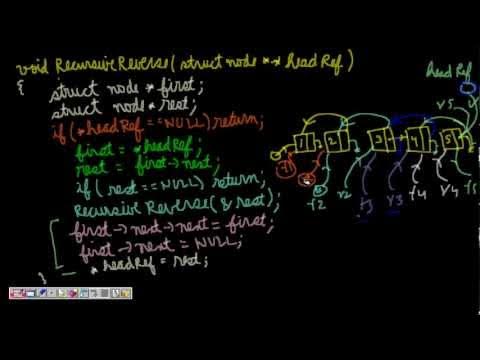 void RecursiveReverse(struct node **headRef)
{
struct node *first;
struct node *rest;
if (*headRef == NULL) return;
first = *headRef;
rest = first->next;
if (rest == NULL) return;
Recursive Reverse(& rest);
first->next->next = first;
first->next = NULL;
*headRef = rest;
}
head Ref
r5
1 2 3 4 5
f1 f2 r2 f3 r3 f4 r4 f5